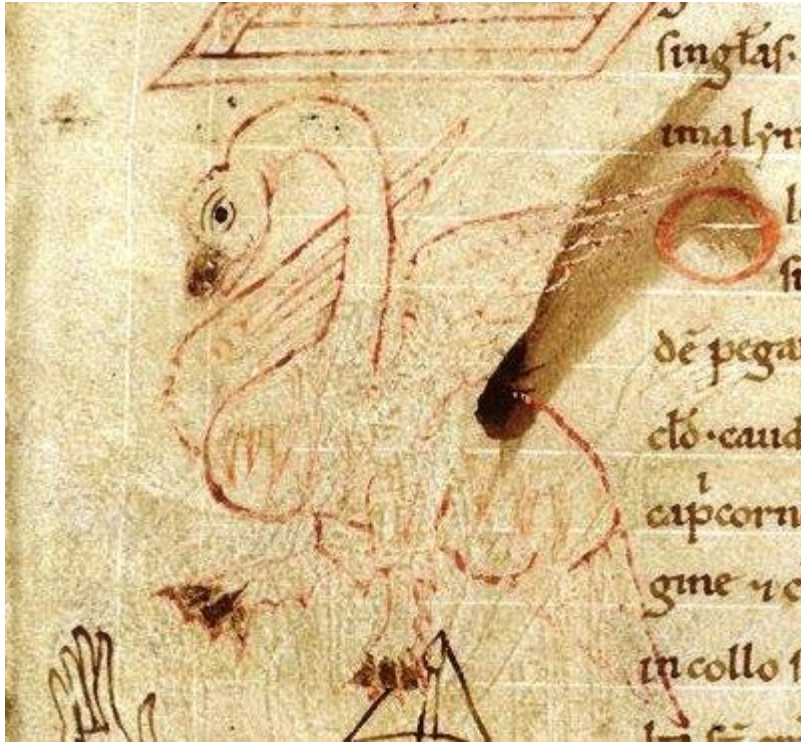 singłas.
ima lyr
l
si
dē pega
clō · caud
cap̄corn
gine ⁊ c
in collo s